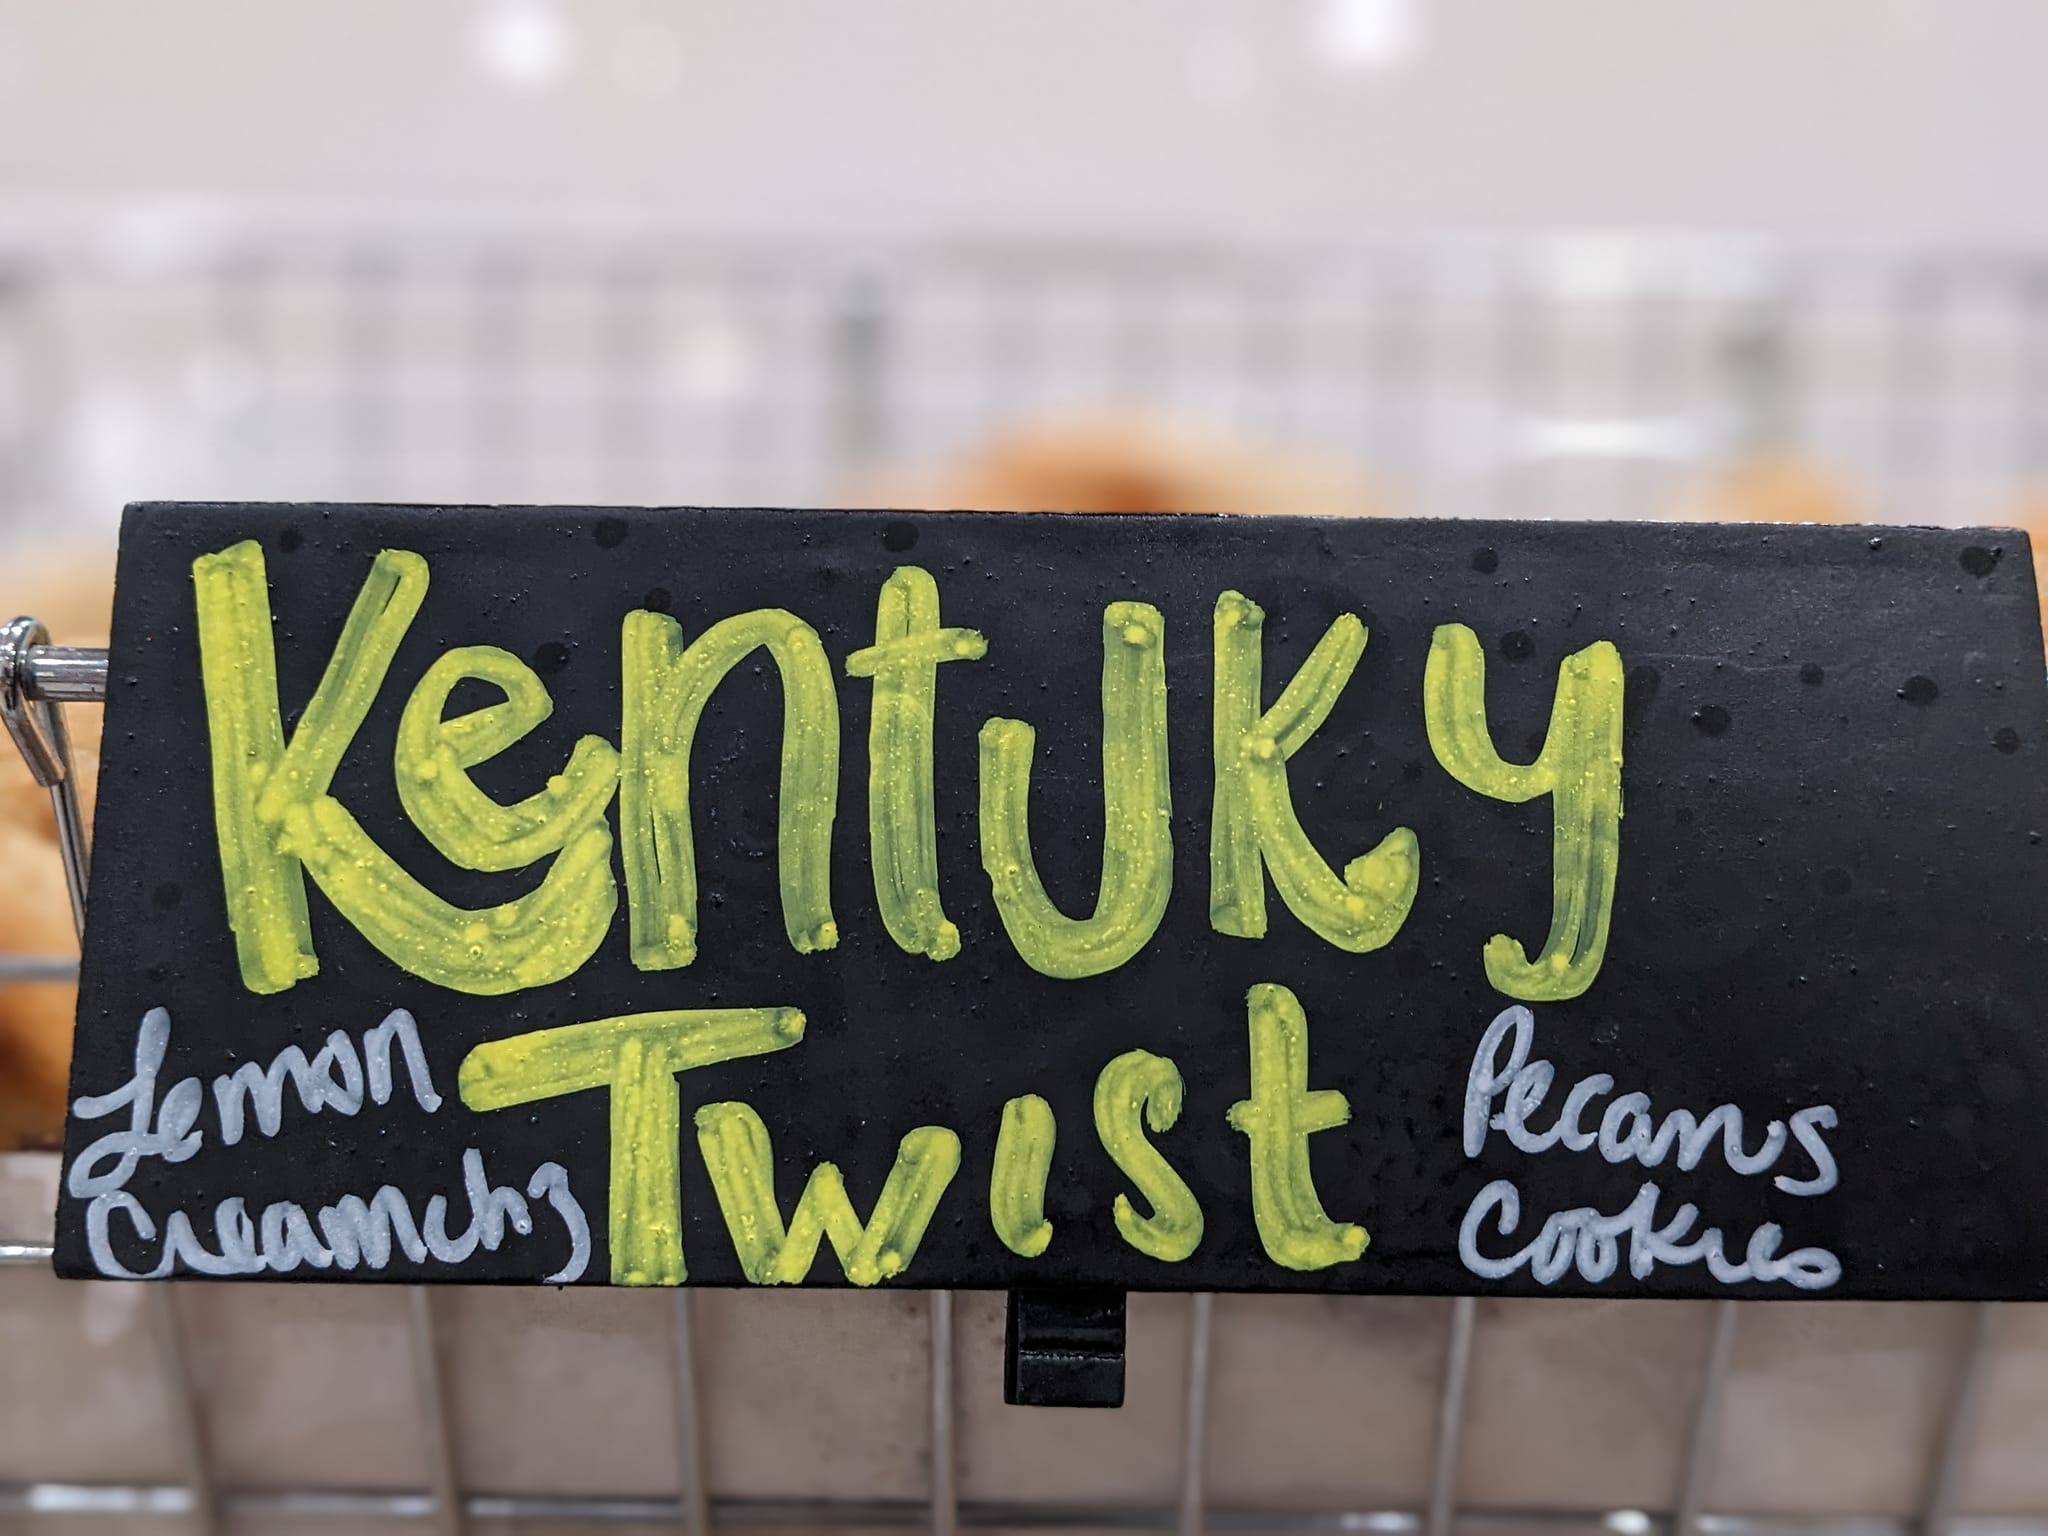 Kentuky
Twist
Lemon
Creamchz
Pecans
Cookies